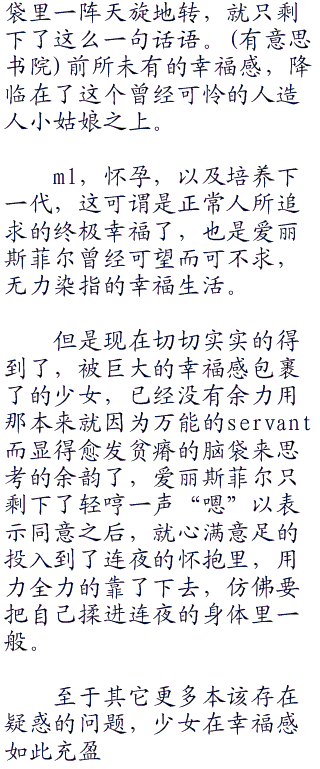 袋里一阵天旋地转，就只剩
下了这么一句话语。(有意思
书院)前所未有的幸福感，降
临在了这个曾经可怜的人造
人小姑娘之上。
m1，怀孕，以及培养下
一代，这可谓是正常人所追
求的终极幸福了，也是爱丽
斯菲尔曾经可望而可不求，
无力染指的幸福生活。
但是现在切切实实的得
到了，被巨大的幸福感包裹
了的少女，已经没有余力用
那本来就因为万能的servant
而显得愈发贫瘠的脑袋来思
考的余韵了，爱丽斯菲尔只
剩下了轻哼一声“嗯”以表
示同意之后，就心满意足的
投入到了连夜的怀抱里，用
力全力的靠了下去，仿佛要
把自己揉进连夜的身体里一
般。
至于其它更多本该存在
疑惑的问题，少女在幸福感
如此充盈